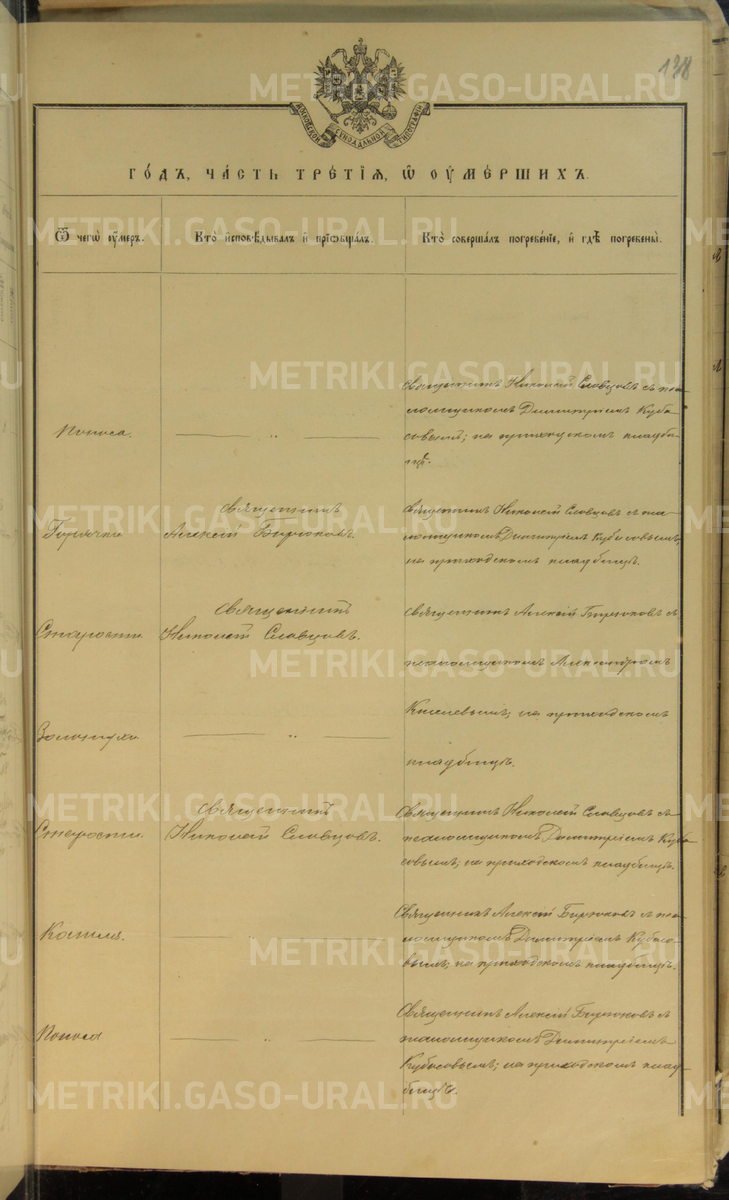 138
МОСКОВСКОЙ СѴНОДАЛЬНОЙ ТИПОГРАФІИ
ГО́ДЪ, ЧА́СТЬ ТРЕ́ТІѦ, Ѽ ОУ҆МЕ́РШИХЪ.
Ѿ чегѡ̀ оу҆́меръ.
Кто̀ и҆сповѣ́дывалъ и҆ прїѡбща́лъ.
Кто̀ соверша́лъ погребе́нїе, и҆ гдѣ̀ погребены̀.
Поноса.
Священникъ Николай Словцовъ съ пса-
ломщикомъ Димитріемъ Куба-
совымъ; на приходскомъ кладби-
щѣ.
Горячки
Священникъ
Алексій Бирюковъ.
Священникъ Николай Словцовъ съ пса-
ломщикомъ Димитріемъ Кубасовымъ;
на приходскомъ кладбищѣ.
Старости.
Священникъ
Николай Словцовъ.
Священникъ Алексій Бирюковъ съ
псаломщикомъ Александромъ
на приходскомъ
кладбищѣ.
Золотухи
Старости.
Священникъ
Николай Словцовъ.
Священникъ Николай Словцовъ съ
псаломщикомъ Димитріемъ Куба-
совымъ; на приходскомъ кладбищѣ.
Кашля.
Священникъ Алексій Бирюковъ съ пса-
ломщикомъ Димитріемъ Кубасо-
вымъ; на приходскомъ кладбищѣ.
Поноса
Священникъ Алексій Бирюковъ съ
псаломщикомъ Димитріемъ
Кубасовымъ; на приходскомъ клад-
бищѣ.
METRIKI.GASO-URAL.RU